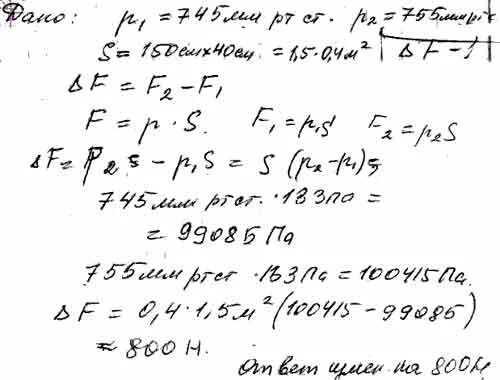 Дано: p₁ = 745мм рт ст. p₂ = 755мм рт
S = 150см×40см = 1,5·0,4м² ΔF - ?
ΔF = F₂ - F₁
F = p·S. F₁ = p₁S F₂ = p₂S
ΔF = P₂s - p₁S = S (p₂-p₁)
745мм рт ст. · 133Па =
= 99085 Па
755мм рт ст · 133Па = 100415 Па.
ΔF = 0,4·1,5м² (100415 - 99085)
≈ 800 Н.
Ответ измен. на 800Н